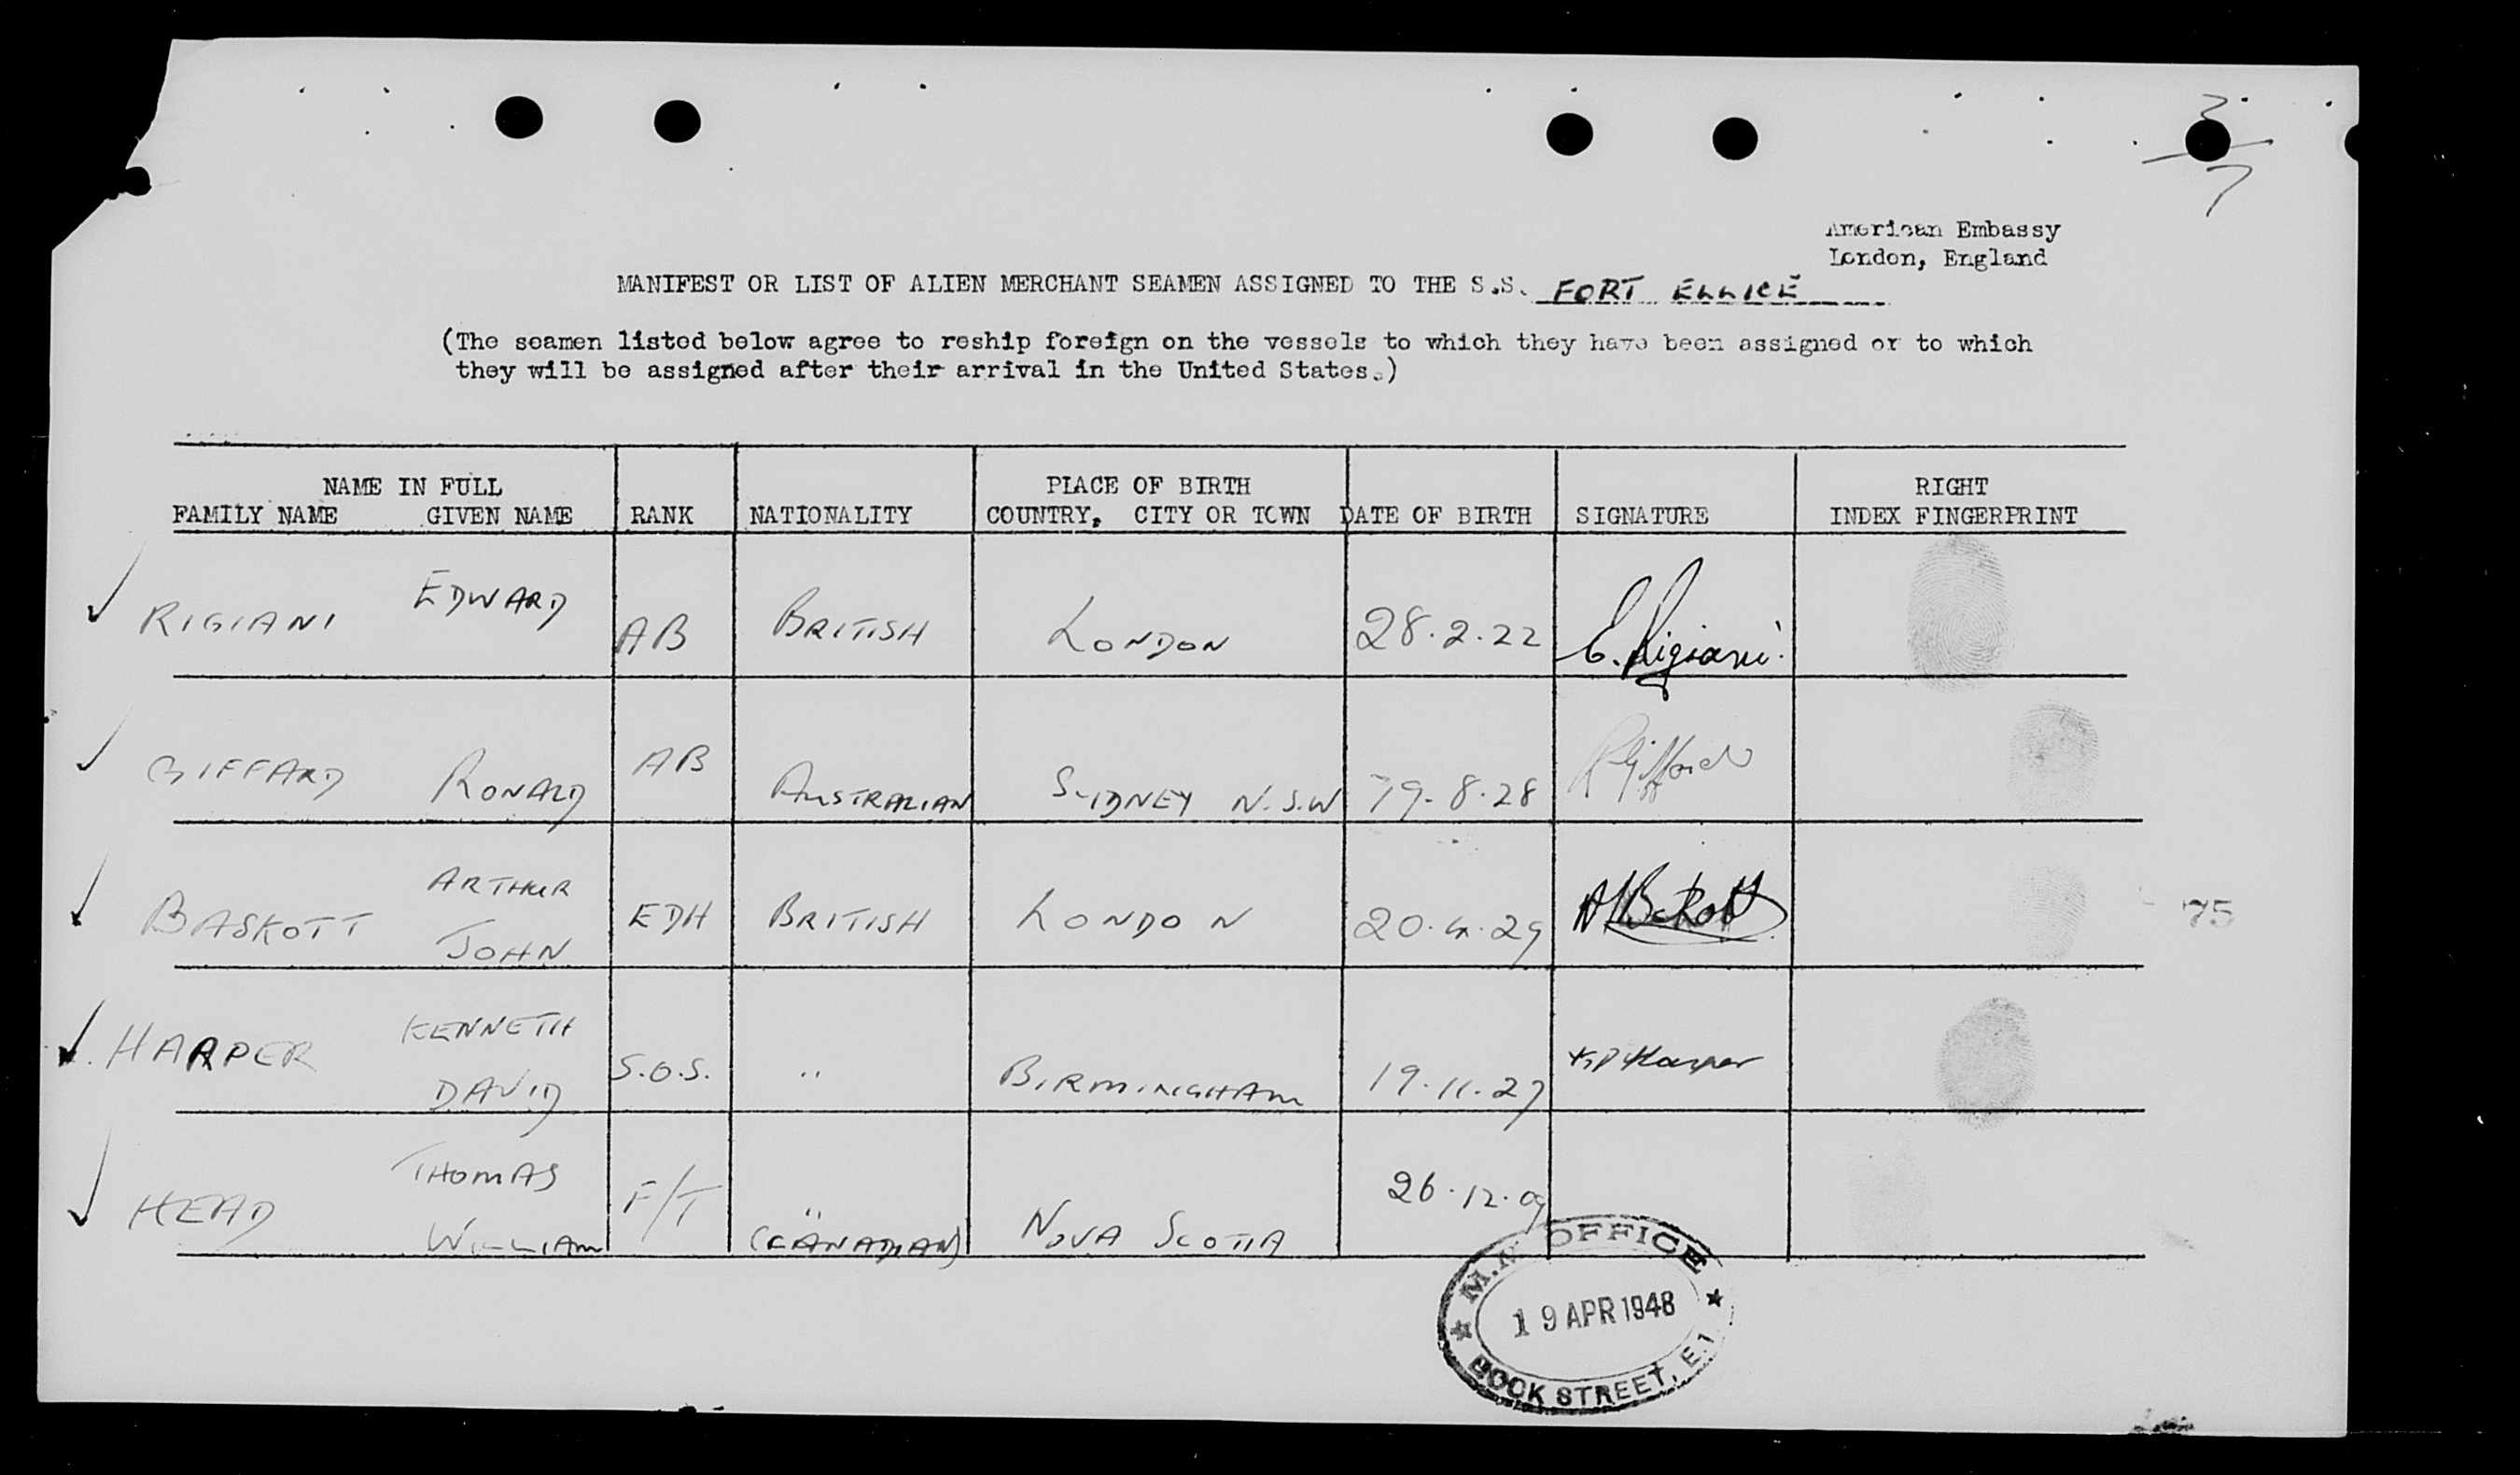 3
7
American Embassy
London, England
MANIFEST OR LIST OF ALIEN MERCHANT SEAMEN ASSIGNED TO THE S.S. FORT ELLICE
(The seamen listed below agree to reship foreign on the vessels to which they have been assigned or to which
they will be assigned after their arrival in the United States.)
NAME IN FULL PLACE OF BIRTH RIGHT
FAMILY NAME GIVEN NAME RANK NATIONALITY COUNTRY, CITY OR TOWN DATE OF BIRTH SIGNATURE INDEX FINGERPRINT
RIGIANI EDWARD AB BRITISH LONDON 28.2.22 E. Rigiani
GIFFARD RONALD AB AUSTRALIAN SYDNEY N.S.W 19.8.28 R Giffard
ARTHUR
BASKOTT JOHN EDH BRITISH LONDON 20.4.29
75
KENNETH
HARPER DAVID S.O.S. " BIRMINGHAM 19.11.27 K D Harper
THOMAS
HEAD WILLIAM F/T " (CANADIAN) NOVA SCOTIA 26.12.09
OFFICE
19 APR 1948
DOCK STREET, E.1